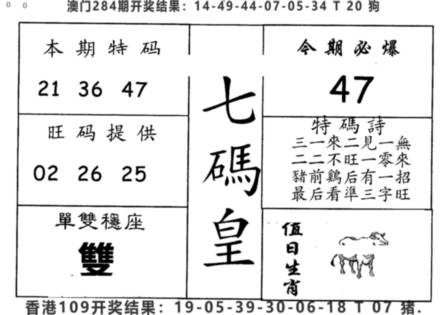 澳门284期开奖结果：14-49-44-07-05-34 T 20 狗
本期特码
21 36 47
旺码提供
02 26 25
單雙穩座
雙
七碼皇
今期必爆
47
特碼詩
三一來二見一無
二二不旺一零來
豬前鷄后有一招
最后看準三字旺
值日生肖
香港109开奖结果：19-05-39-30-06-18 T 07 猪.